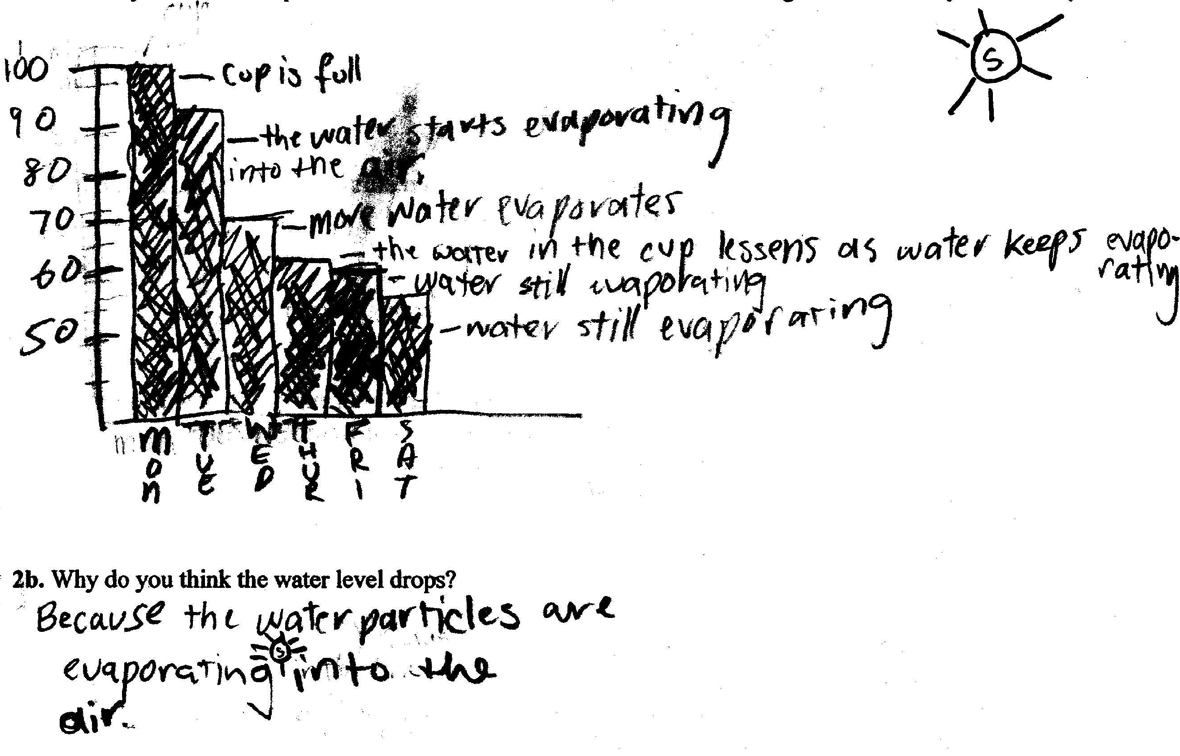 100
90
80
70
60
50
S
cup is full
the water starts evaporating
into the air.
more water evaporates
the water in the cup lessens as water keeps evapo-
rating
water still evaporating
water still evaporating
MON
TUE
WED
THUR
FRI
SAT
2b. Why do you think the water level drops?
Because the water particles are
S
evaporating into the
air.